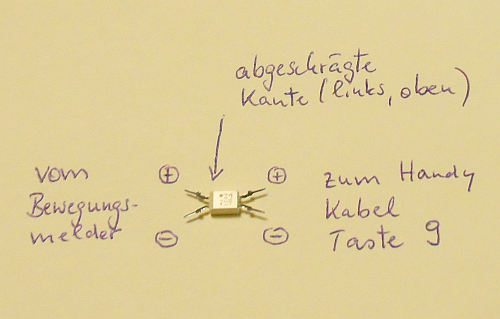 abgeschrägte
Kante (links, oben)
vom
Bewegungs-
melder
⊕
⊖
⊕
⊖
zum Handy
Kabel
Taste 9